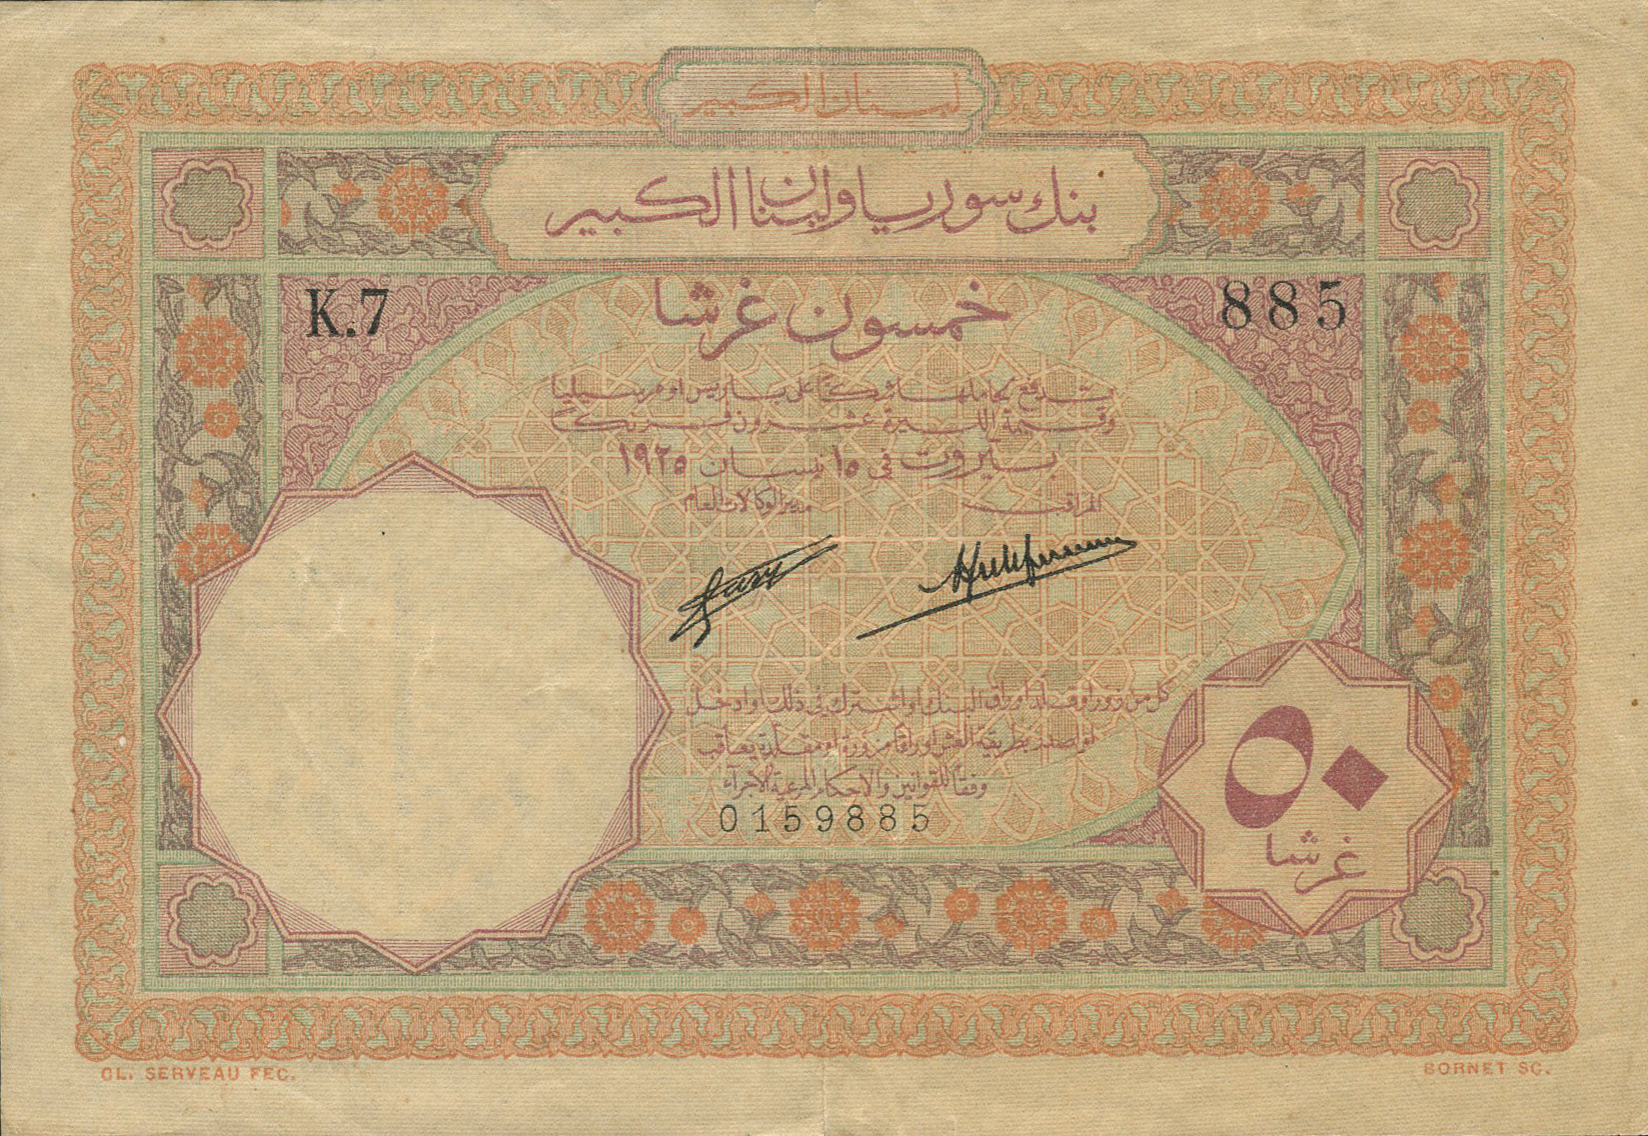 لبنان الكبير
بنك سوريا ولبنان الكبير
K.7
خمسون غرشا
885
تدفع لحاملها شكًا على باريس او مرسيليا
وقيمة الليرة عشرون فرنكًا
بيروت في ١٥ نيسان ١٩٢٥
المراقب
مدير الوكالات العام
كل من زور او قلد اوراق البنك او اشترك في ذلك او ادخل
او اصدر بطريقة الغش اوراقا مزورة او مقلدة يعاقب
وفقًا للقوانين والاحكام المرعية الاجرآء
0159885
٥٠
غرشا
CL. SERVEAU FEC.
BORNET SC.